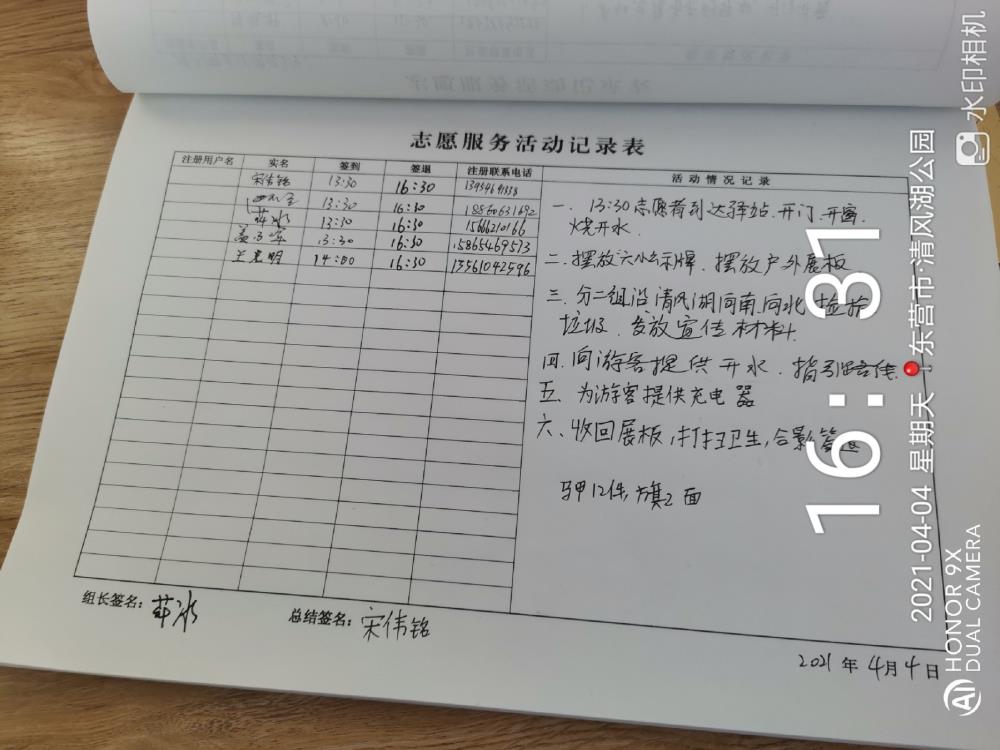 志愿服务活动记录表
注册用户名 实名 签到 签退 注册联系电话 活动情况记录
宋伟铭 13:30 16:30
13:30 16:30 18860631692
薛冰 13:30 16:30 15666210166
13:30 16:30 15865469573
14:00 16:30 13561042596
一. 13:30志愿者到达驿站. 开门. 开窗.
烧开水.
二. 摆放六小标牌. 摆放户外展板
三. 分二组沿清风湖向南向北 捡拾
垃圾. 发放宣传材料.
四. 向游客提供开水. 指引路线.
五、为游客提供充电器
六、收回展板,打扫卫生,合影签退
马甲12件, 旗2面
组长签名: 薛冰 总结签名: 宋伟铭
2021年4月4日
16:31
2021-04-04 星期天 东营市·清风湖公园
水印相机
HONOR 9X
AI DUAL CAMERA